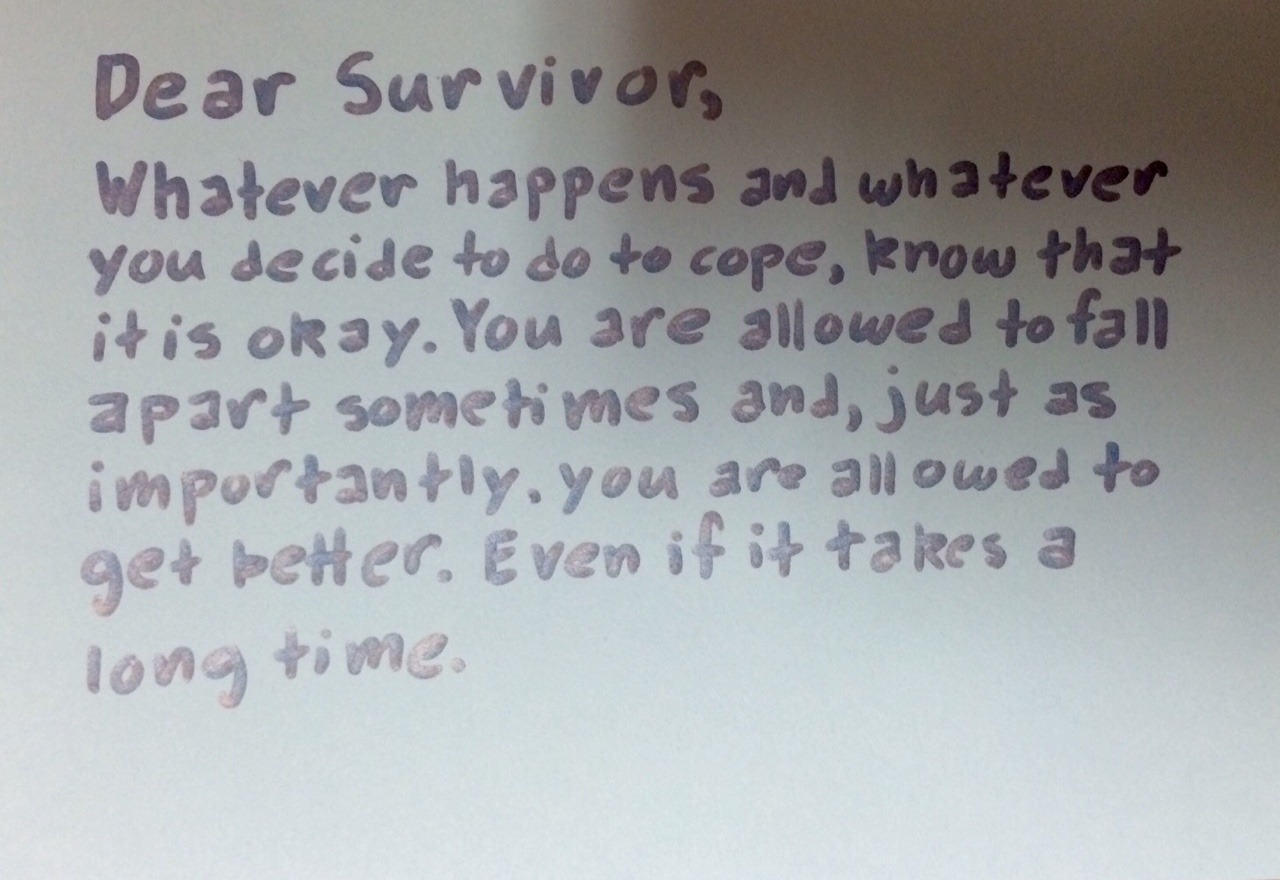 Dear Survivor,
Whatever happens and whatever
you decide to do to cope, know that
it is okay. You are allowed to fall
apart sometimes and, just as
importantly. you are allowed to
get better. Even if it takes a
long time.